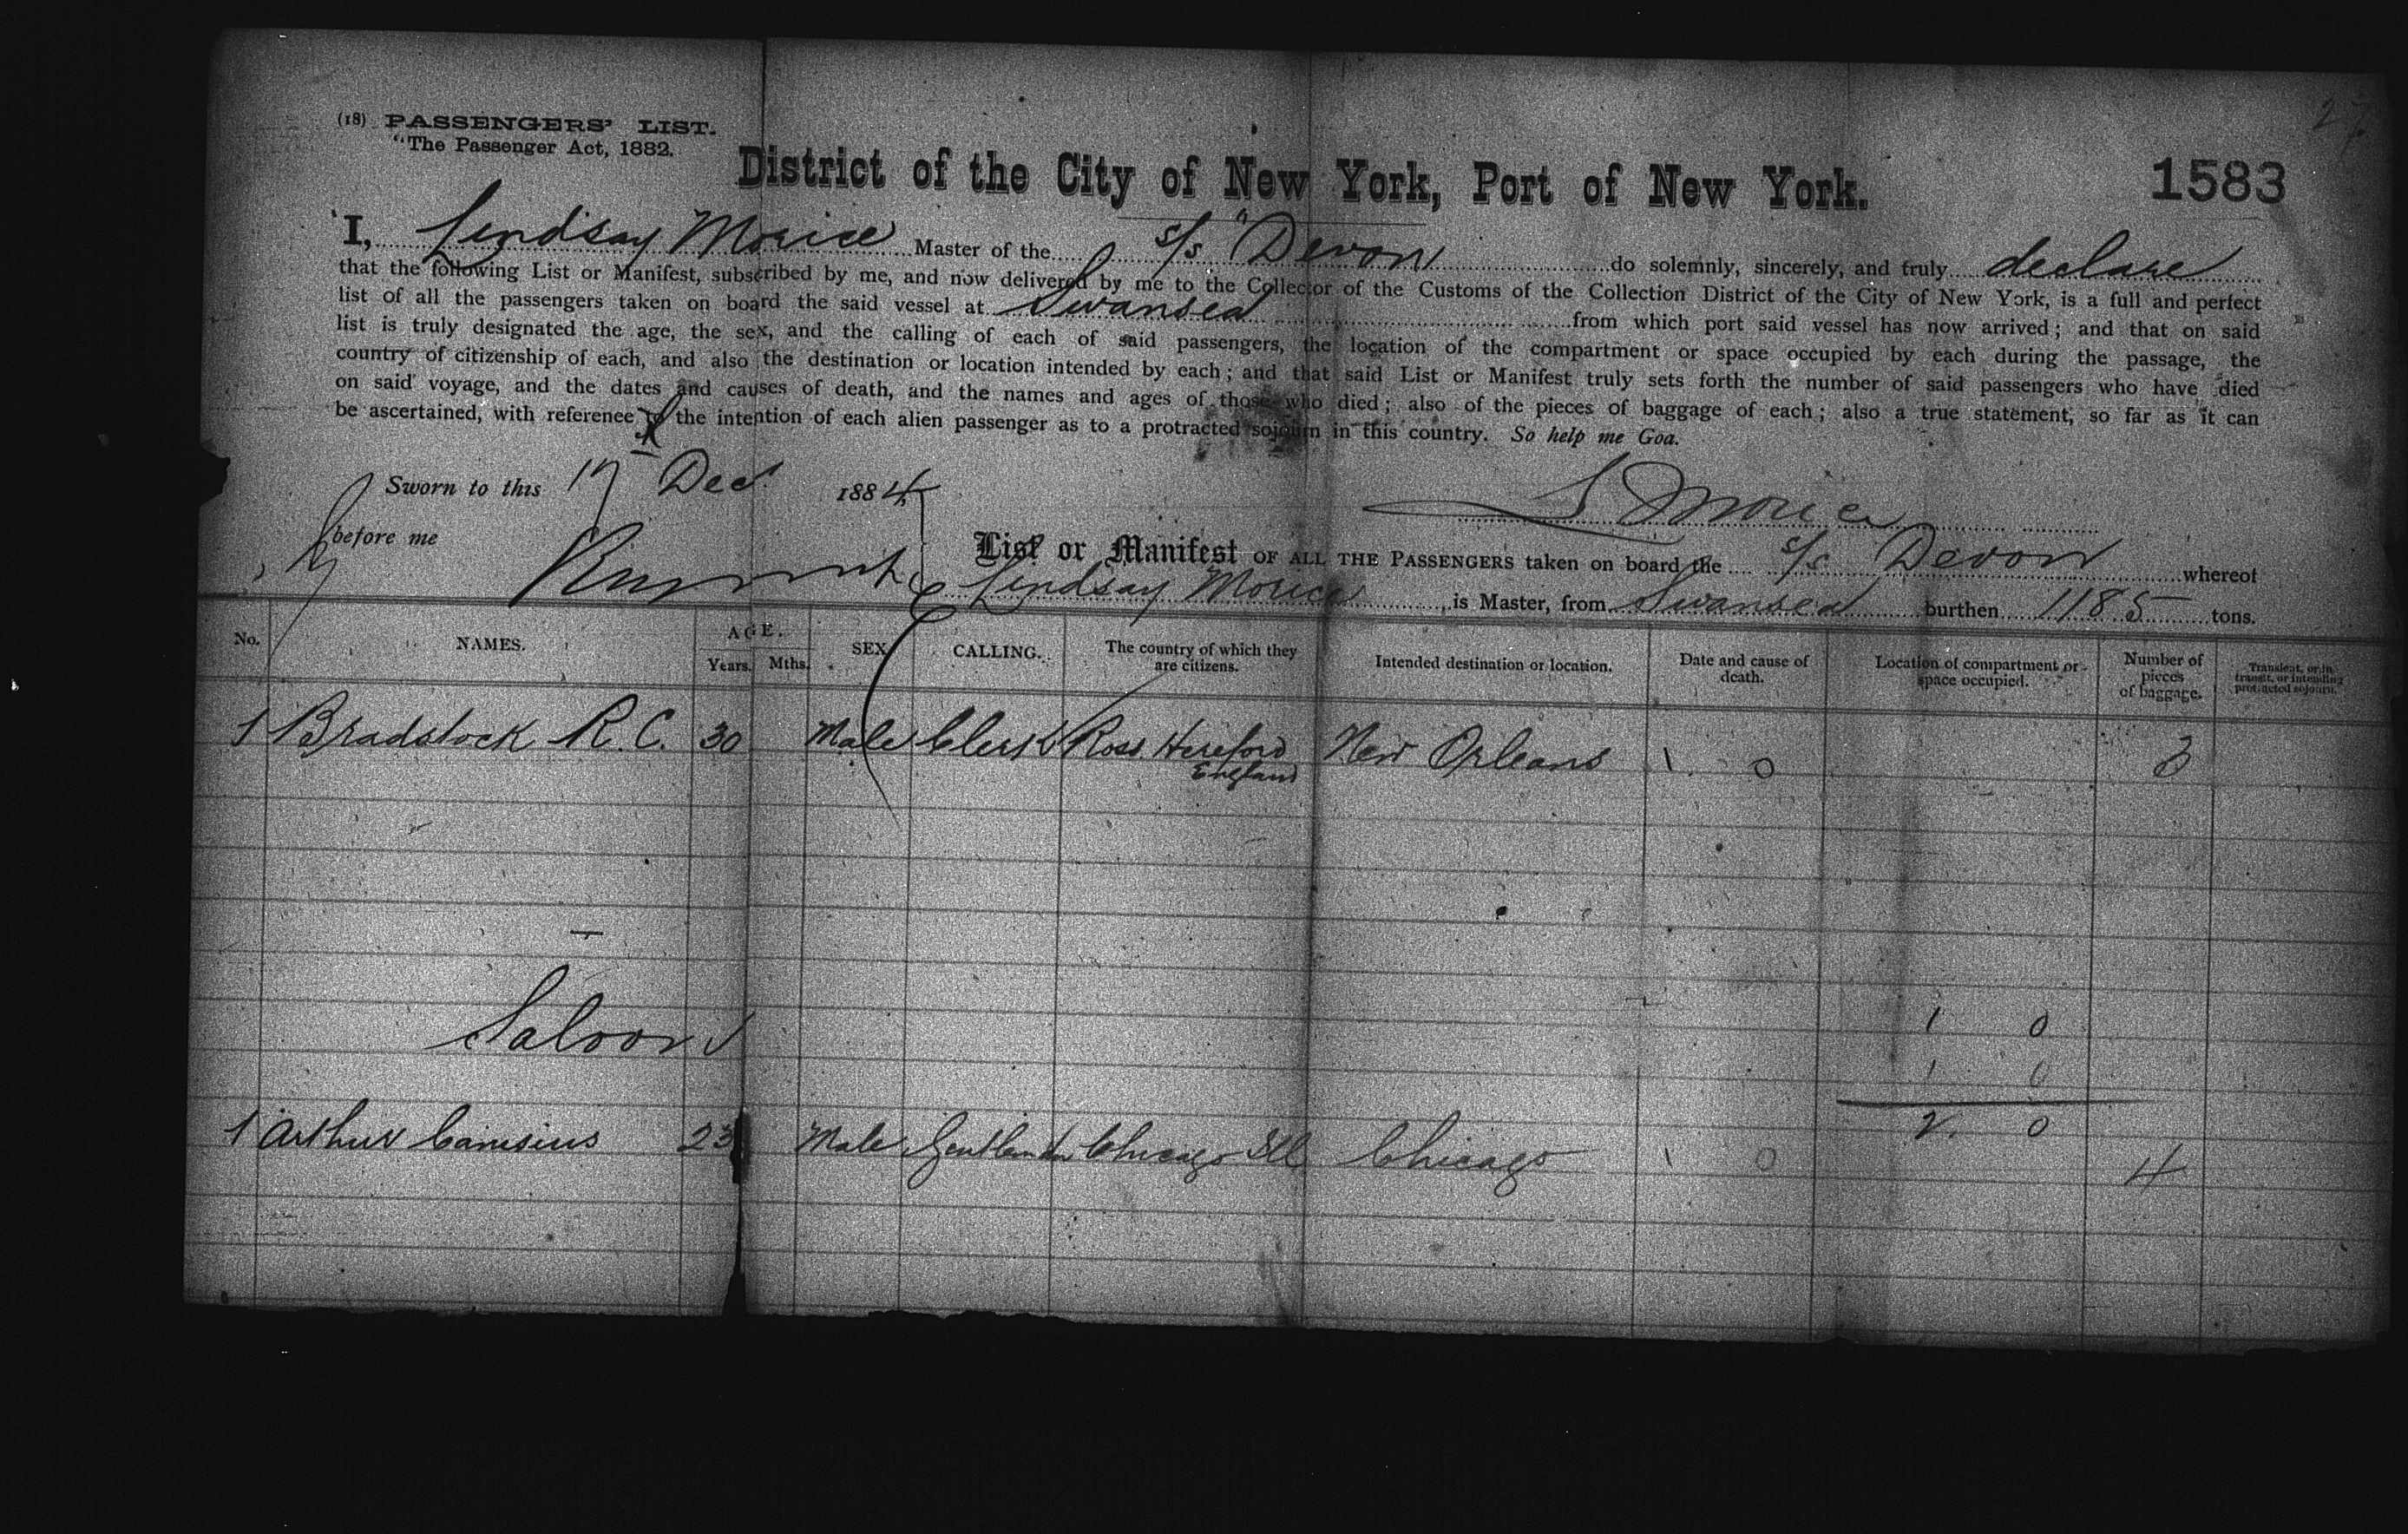 (18) PASSENGERS' LIST.
"The Passenger Act, 1882.
District of the City of New York, Port of New York.
1583
I, Lindsay Morice Master of the s/s "Devon do solemnly, sincerely, and truly declare
that the following List or Manifest, subscribed by me, and now delivered by me to the Collector of the Customs of the Collection District of the City of New York, is a full and perfect
list of all the passengers taken on board the said vessel at Swansea from which port said vessel has now arrived; and that on said
list is truly designated the age, the sex, and the calling of each of said passengers, the location of the compartment or space occupied by each during the passage, the
country of citizenship of each, and also the destination or location intended by each; and that said List or Manifest truly sets forth the number of said passengers who have died
on said voyage, and the dates and causes of death, and the names and ages of those who died; also of the pieces of baggage of each; also a true statement, so far as it can
be ascertained, with reference to the intention of each alien passenger as to a protracted sojourn in this country. So help me God.
Sworn to this 17 Dec. 1884
L Morice
before me
List or Manifest OF ALL THE PASSENGERS taken on board the s/s Devon whereof
Lindsay Morice is Master, from Swansea burthen 1185 tons.
No. NAMES. AGE. Years. Mths. SEX CALLING. The country of which they are citizens. Intended destination or location. Date and cause of death. Location of compartment or space occupied. Number of pieces of baggage. Transient, or in transit, or intending protracted sojourn.
1 Bradstock R.C. 30 Male Clerk Ross Hereford New Orleans 1 0 3
England
Saloon
1 0
1 0
2. 0
1 Arthur Canisius 23 Male Gentleman Chicago Ill Chicago 1 0 4